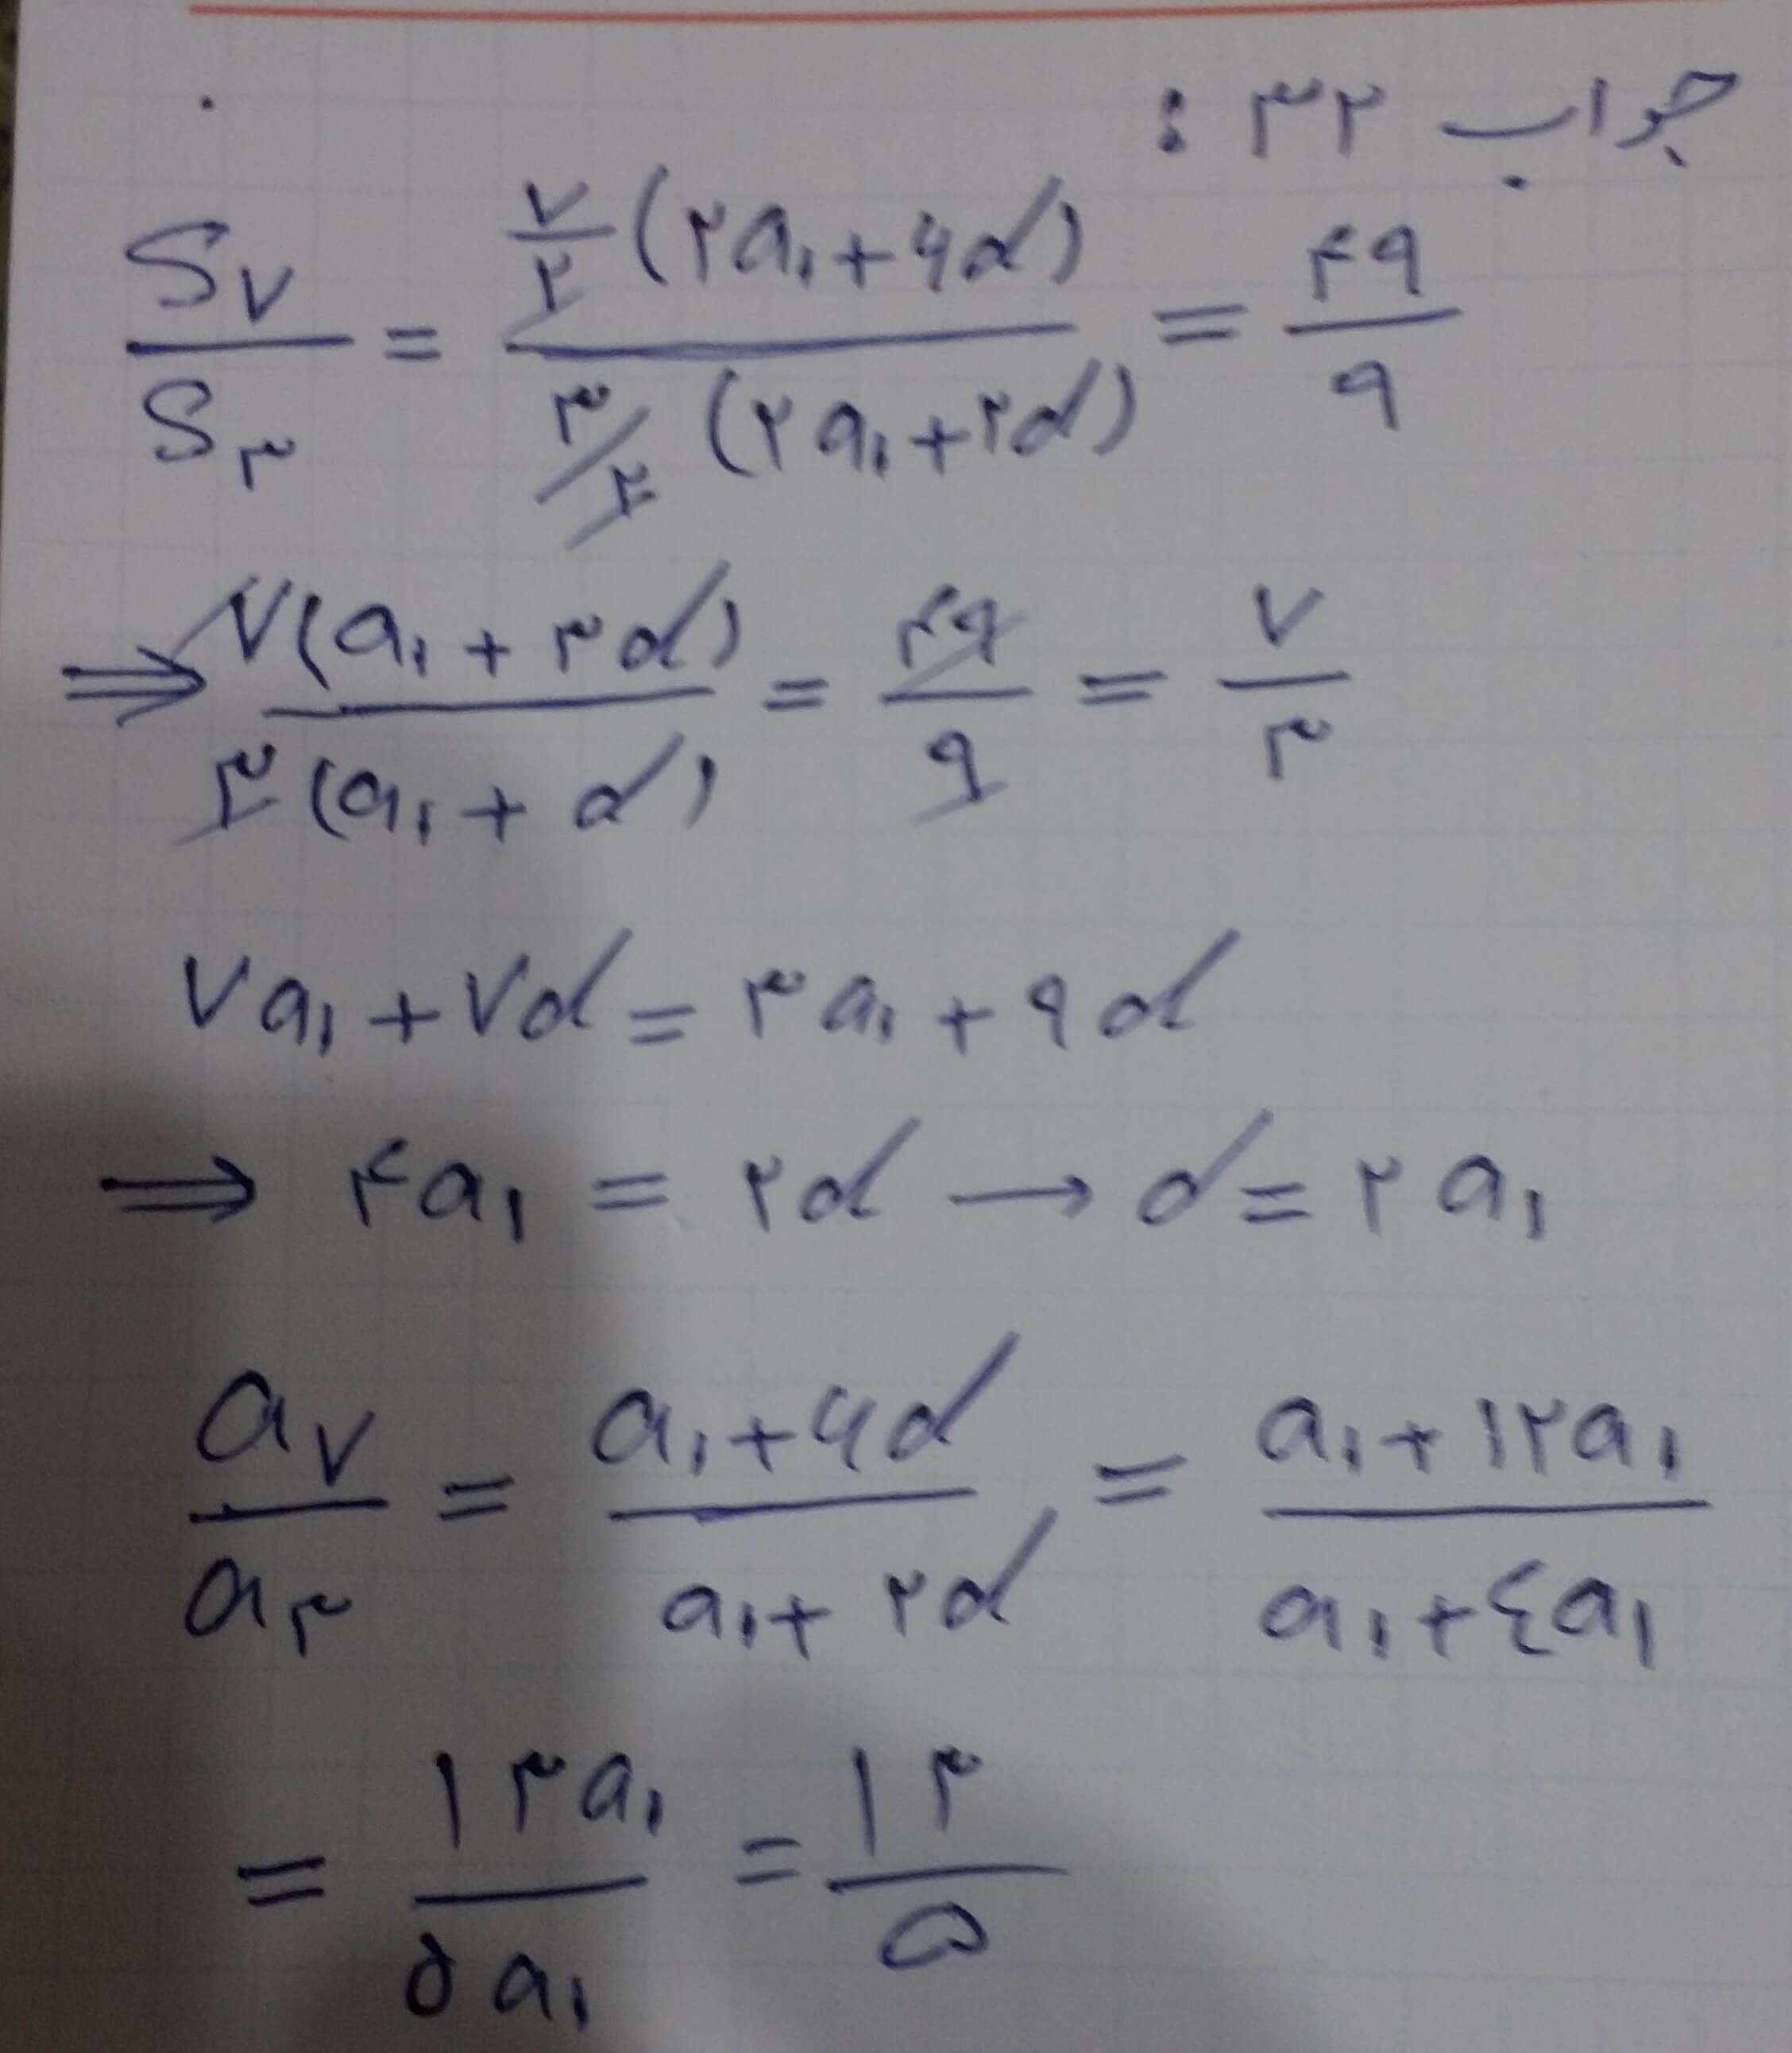 جواب ۳۲ :
S۷/S۳ = ۷/۲ (۲a₁ + ۶d) / ۳/۲ (۲a₁ + ۲d) = ۴۹/۹
⇒ ۷(a₁ + ۳d) / ۳(a₁ + d) = ۴۹/۹ = ۷/۳
۷a₁ + ۷d = ۳a₁ + ۹d
⇒ ۴a₁ = ۲d → d = ۲a₁
a۷/a۳ = a₁ + ۶d / a₁ + ۲d = a₁ + ۱۲a₁ / a₁ + ٤a₁
= ۱۳a₁ / ۵a₁ = ۱۳/۵